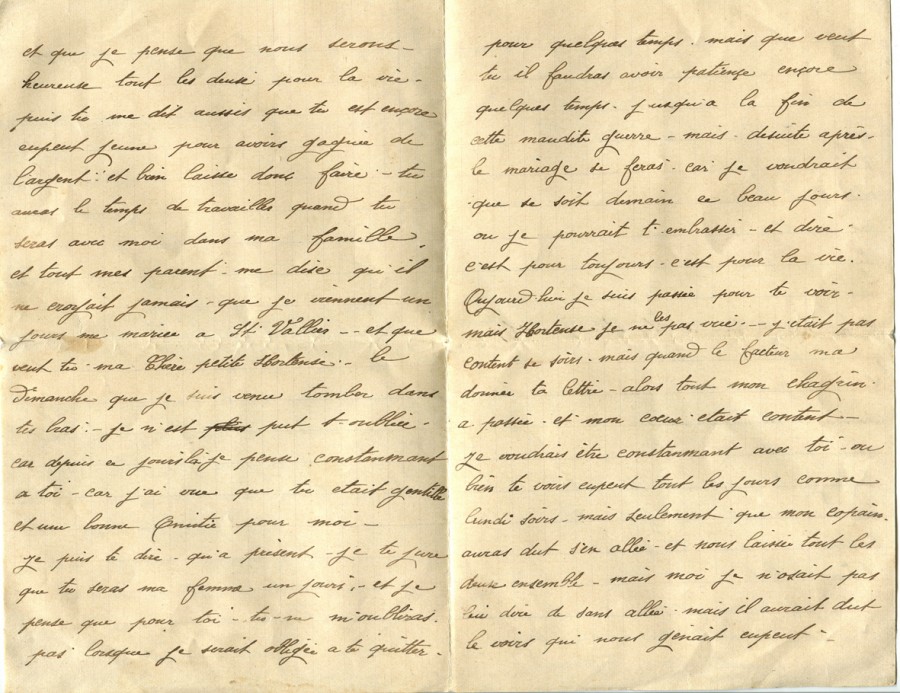 et que je pense que nous serons-
heureuse tout les deusi pour la vie-
puis tu me dit aussis que tu est ençore
eupeut jeune pour avoirs gagnée de
l'argent: et bien laisse donç faire - tu
auras le temps de travailles quand tu
seras avec moi dans ma famille,
et tout mes parent - me dise qu'il
ne croyait jamais - que je viennent un
jours me mariee a St: Vallier -- et que
veut tu - ma Chère petite Hortense. - le
Dimanche que je suis venue tomber dans
tes bras: - je n'est put t-oubliee -
car depuis ce jours là je pense constanmant
a toi - car j'ai vue que tu etait gentille
et une bonne Amitie pour moi -
je puis te dire - qu'a présent - je te jure
que tu seras ma femme un jours, - et je
pense que pour toi - tu - ne m'oubliras.
pas lorsque je serait obligée a te quitter -
pour quelques temps. mais que veut
tu il faudras avoir patiençe ençore
quelques temps. jusqu'a la fin de
cette maudite guerre - mais - desuite après-
le mariage se feras. car je voudrait
que se soit demain ce beau jours.
ou je pourrait t-embrasser - et dire -
c'est pour toujours - c'est pour la vie.
Aujourd'hui je suis passée pour te voir -
mais Hortense je ne les pas vue. -- j'etait pas
content se soirs. mais quand le facteur ma
donnée ta lettre - alors tout mon chagrin.
a passée - et mon coeur etait content -
je voudrais être constanmant avec toi - ou
bien te voirs eupeut tout les jours comme
lundi soirs - mais seulement que mon copain.
auras dut s'en allée - et nous laissée tout les
deux ensemble - mais moi je n'osait pas
lui dire de sans allée - mais il aurait dut
le voirs qui nous génait eupeut -